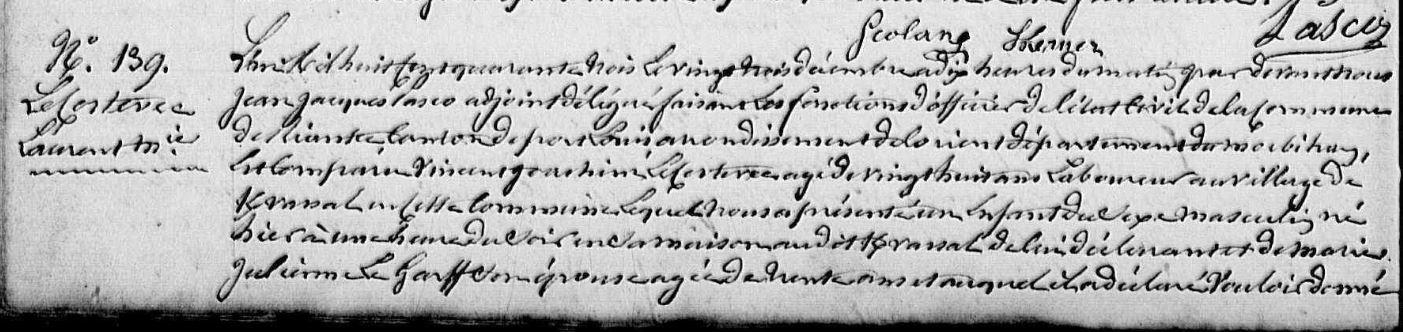 Lascoz
N°. 139.
L'an mil huit cent quarante trois le vingt trois décembre à dix heures du matin par devant nous
Jean Jacques Lasco adjoint délégué faisant les fonctions d'officier de l'état civil de la commune
Laurent m.ie
de Riantec canton de port Louis arrondissement de lorient département du morbihan,
Est Comparu Vincent joachim agé de vingt huit ans Laboureur au village de
en cette Commune lequel nous a présenté un Enfant du Sexe masculin né
hier à une heure du Soir en Sa maison audit de lui déclarant et de marie
Julienne Le Garff Son épouse agée de trente ans et auquel il a déclaré Vouloir donné